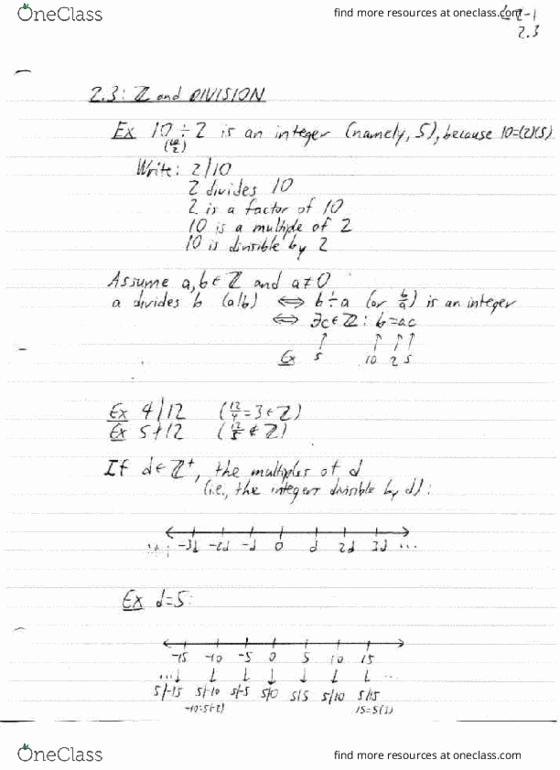 OneClass
find more resources at oneclass.com
2.3
2.3: ℤ and DIVISION
Ex 10 ÷ 2 is an integer (namely, 5), because 10=(2)(5).
(10/2)
Write: 2|10
2 divides 10
2 is a factor of 10
10 is a multiple of 2
10 is divisible by 2
Assume a,b ∈ ℤ and a≠0
a divides b (a|b) ⟺ b÷a (or b/a) is an integer
⟺ ∃c∈ℤ: b=ac
↑ ↑ ↑↑
Ex 5 10 2 5
Ex 4|12 (12/4=3∈ℤ)
Ex 5∤12 (12/5∉ℤ)
If d∈ℤ⁺, the multiples of d
(i.e., the integers divisible by d):
... -3d -2d -d 0 d 2d 3d ...
Ex d=5:
-15 -10 -5 0 5 10 15
...↓ ↓ ↓ ↓ ↓ ↓ ↓ ...
5|-15 5|-10 5|-5 5|0 5|5 5|10 5|15
-10=5(-2) 15=5(3)
OneClass
find more resources at oneclass.com